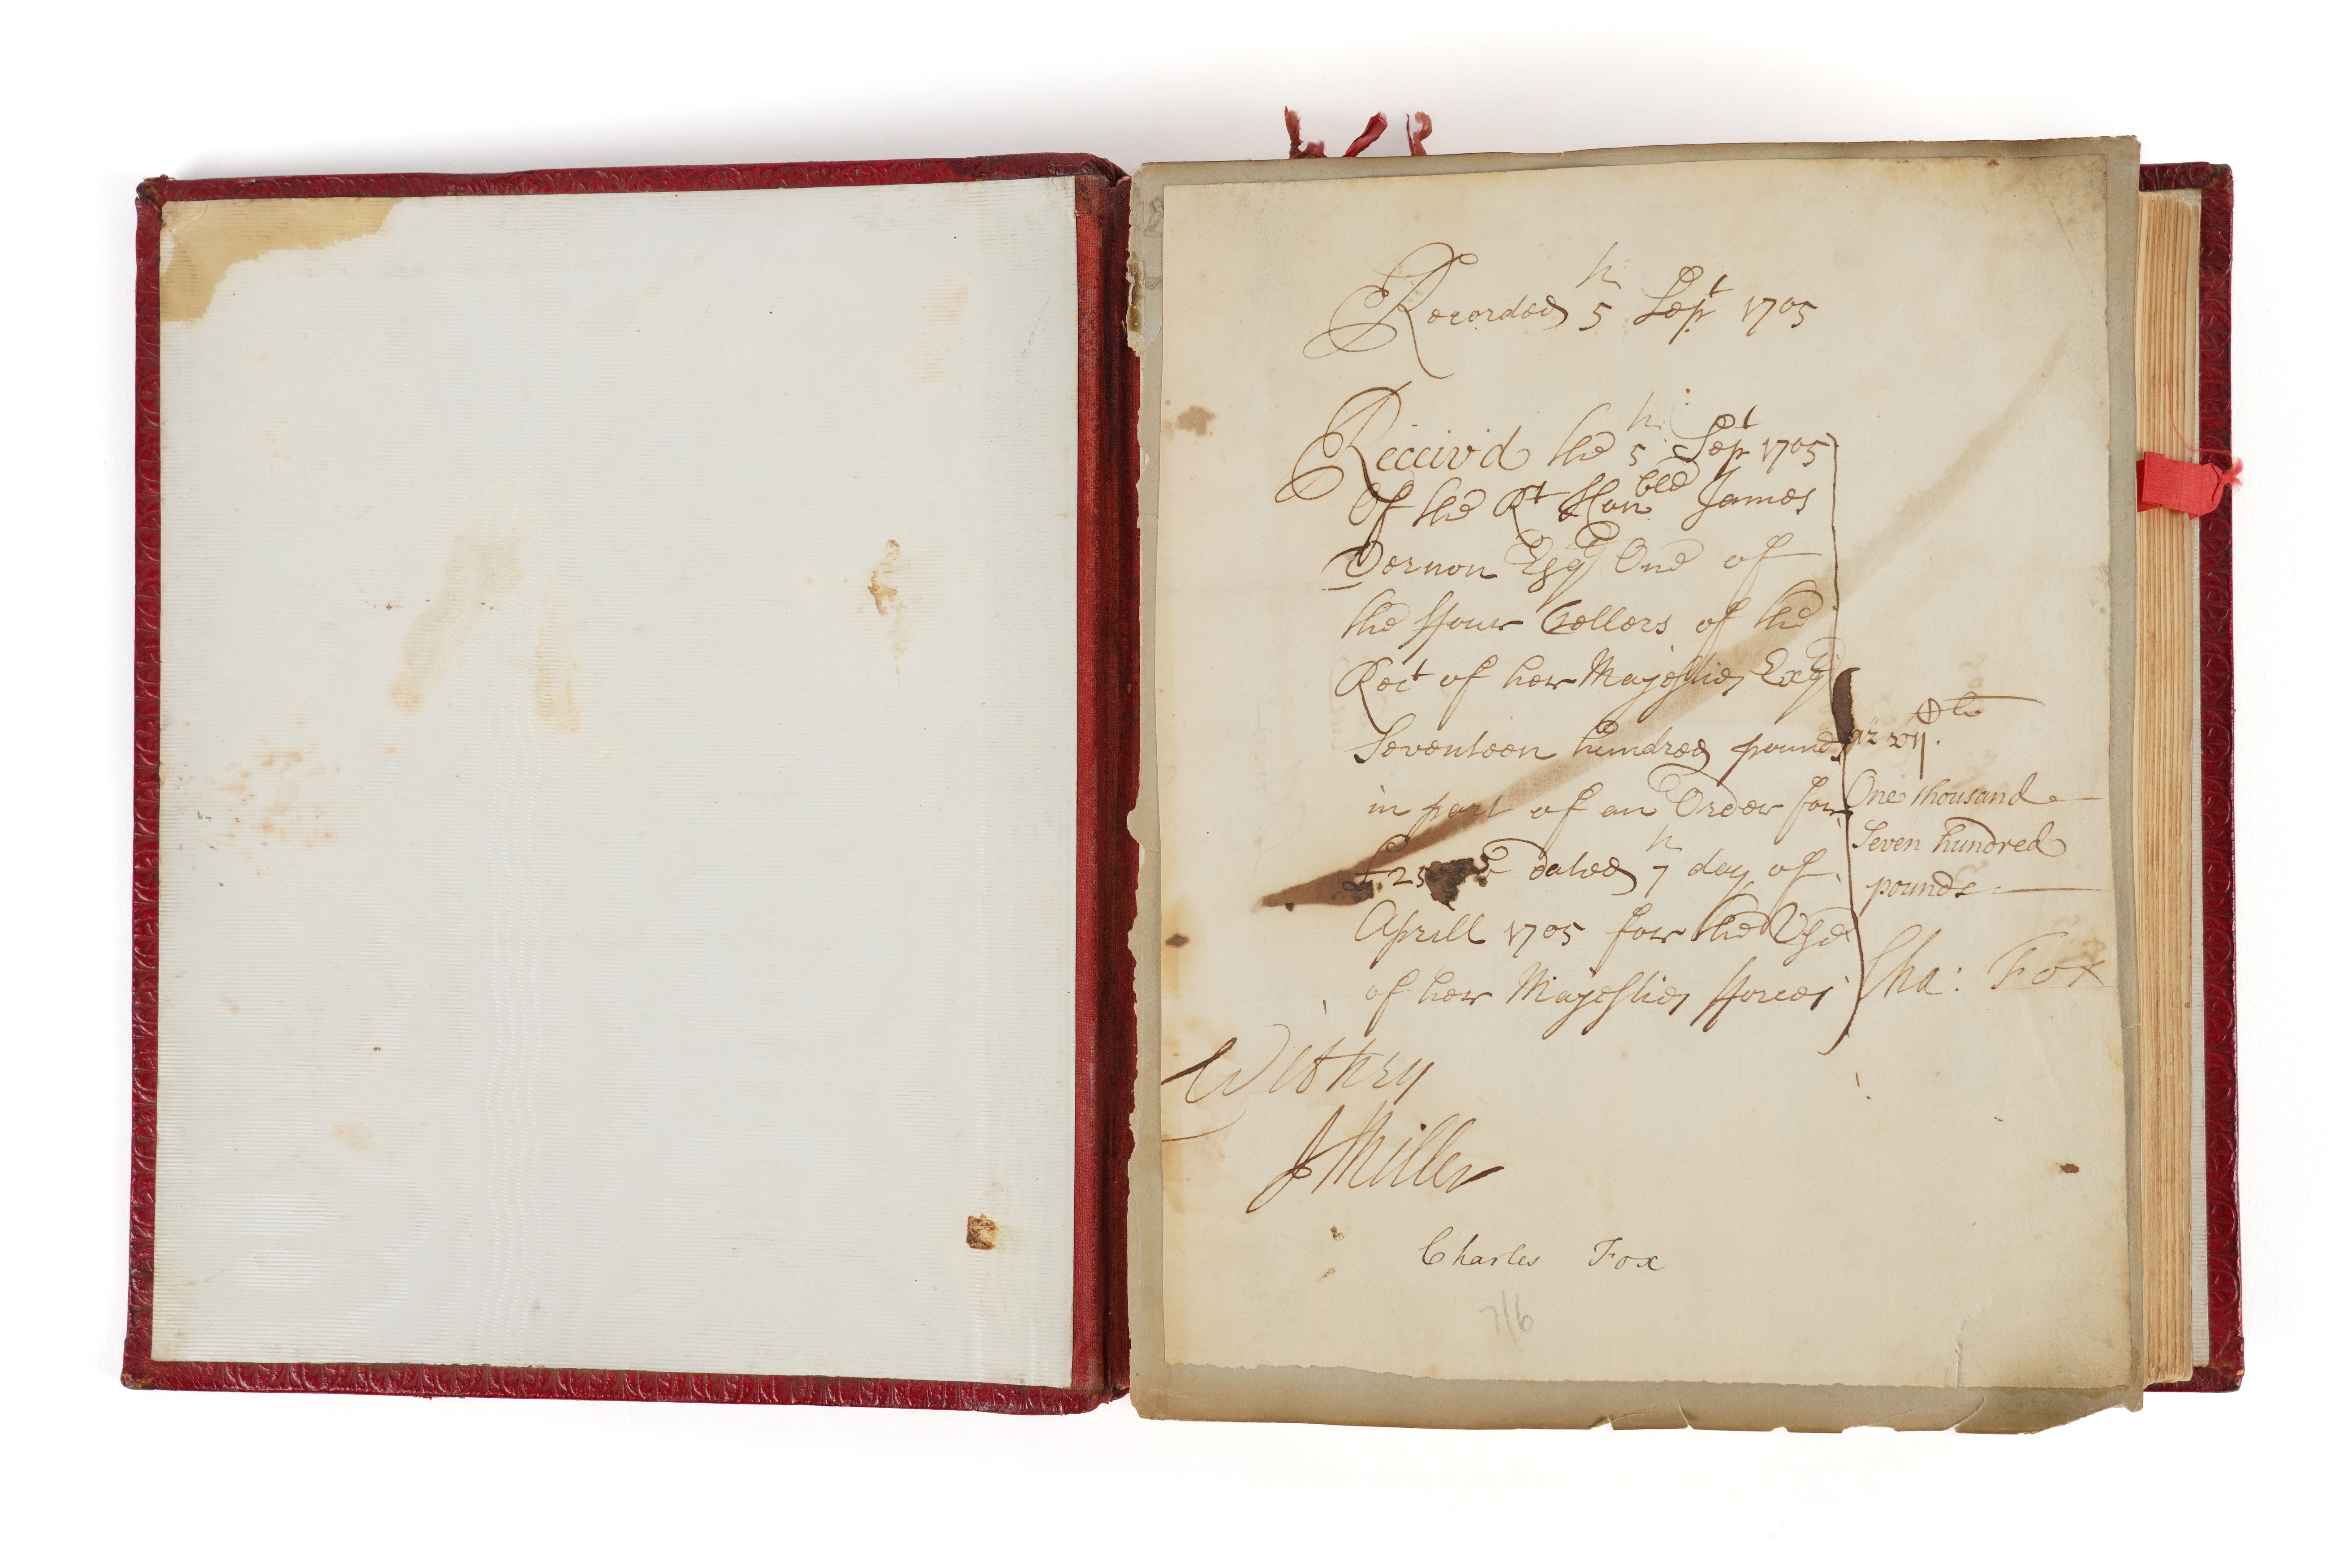 Recorded 5th Sept 1705
Receiv'd the 5th Sept 1705
Of the Rt Honble James
Vernon Esqr One of
the ffour Tellers of the
Rect of her Majesties Excqr
Seventeen hundred pounds
in part of an Order for
dated 7th day of
Aprill 1705 for the Use
of her Majesties fforces
One thousand
Seven hundred
pounds
Cha: Fox
Witness
J Miller
Charles Fox
7/6